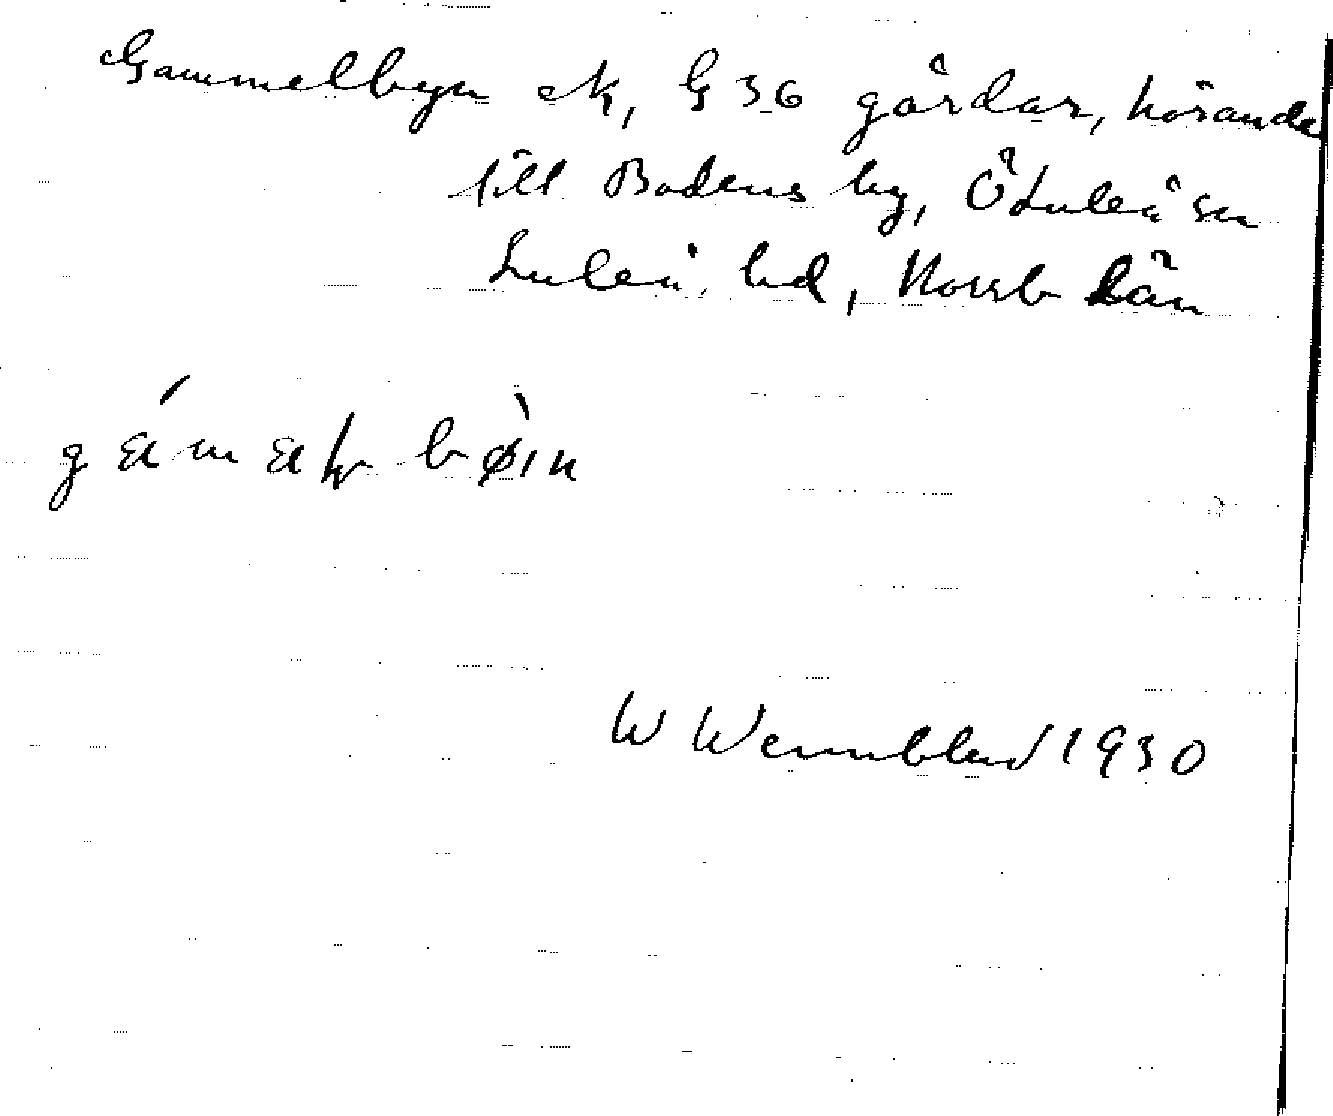 Gammelbyn ek, G 36 gårdar, hörande
till Bodens by, Ö Luleå sn
Luleå hd, Norrb län
W Wennblad 1930